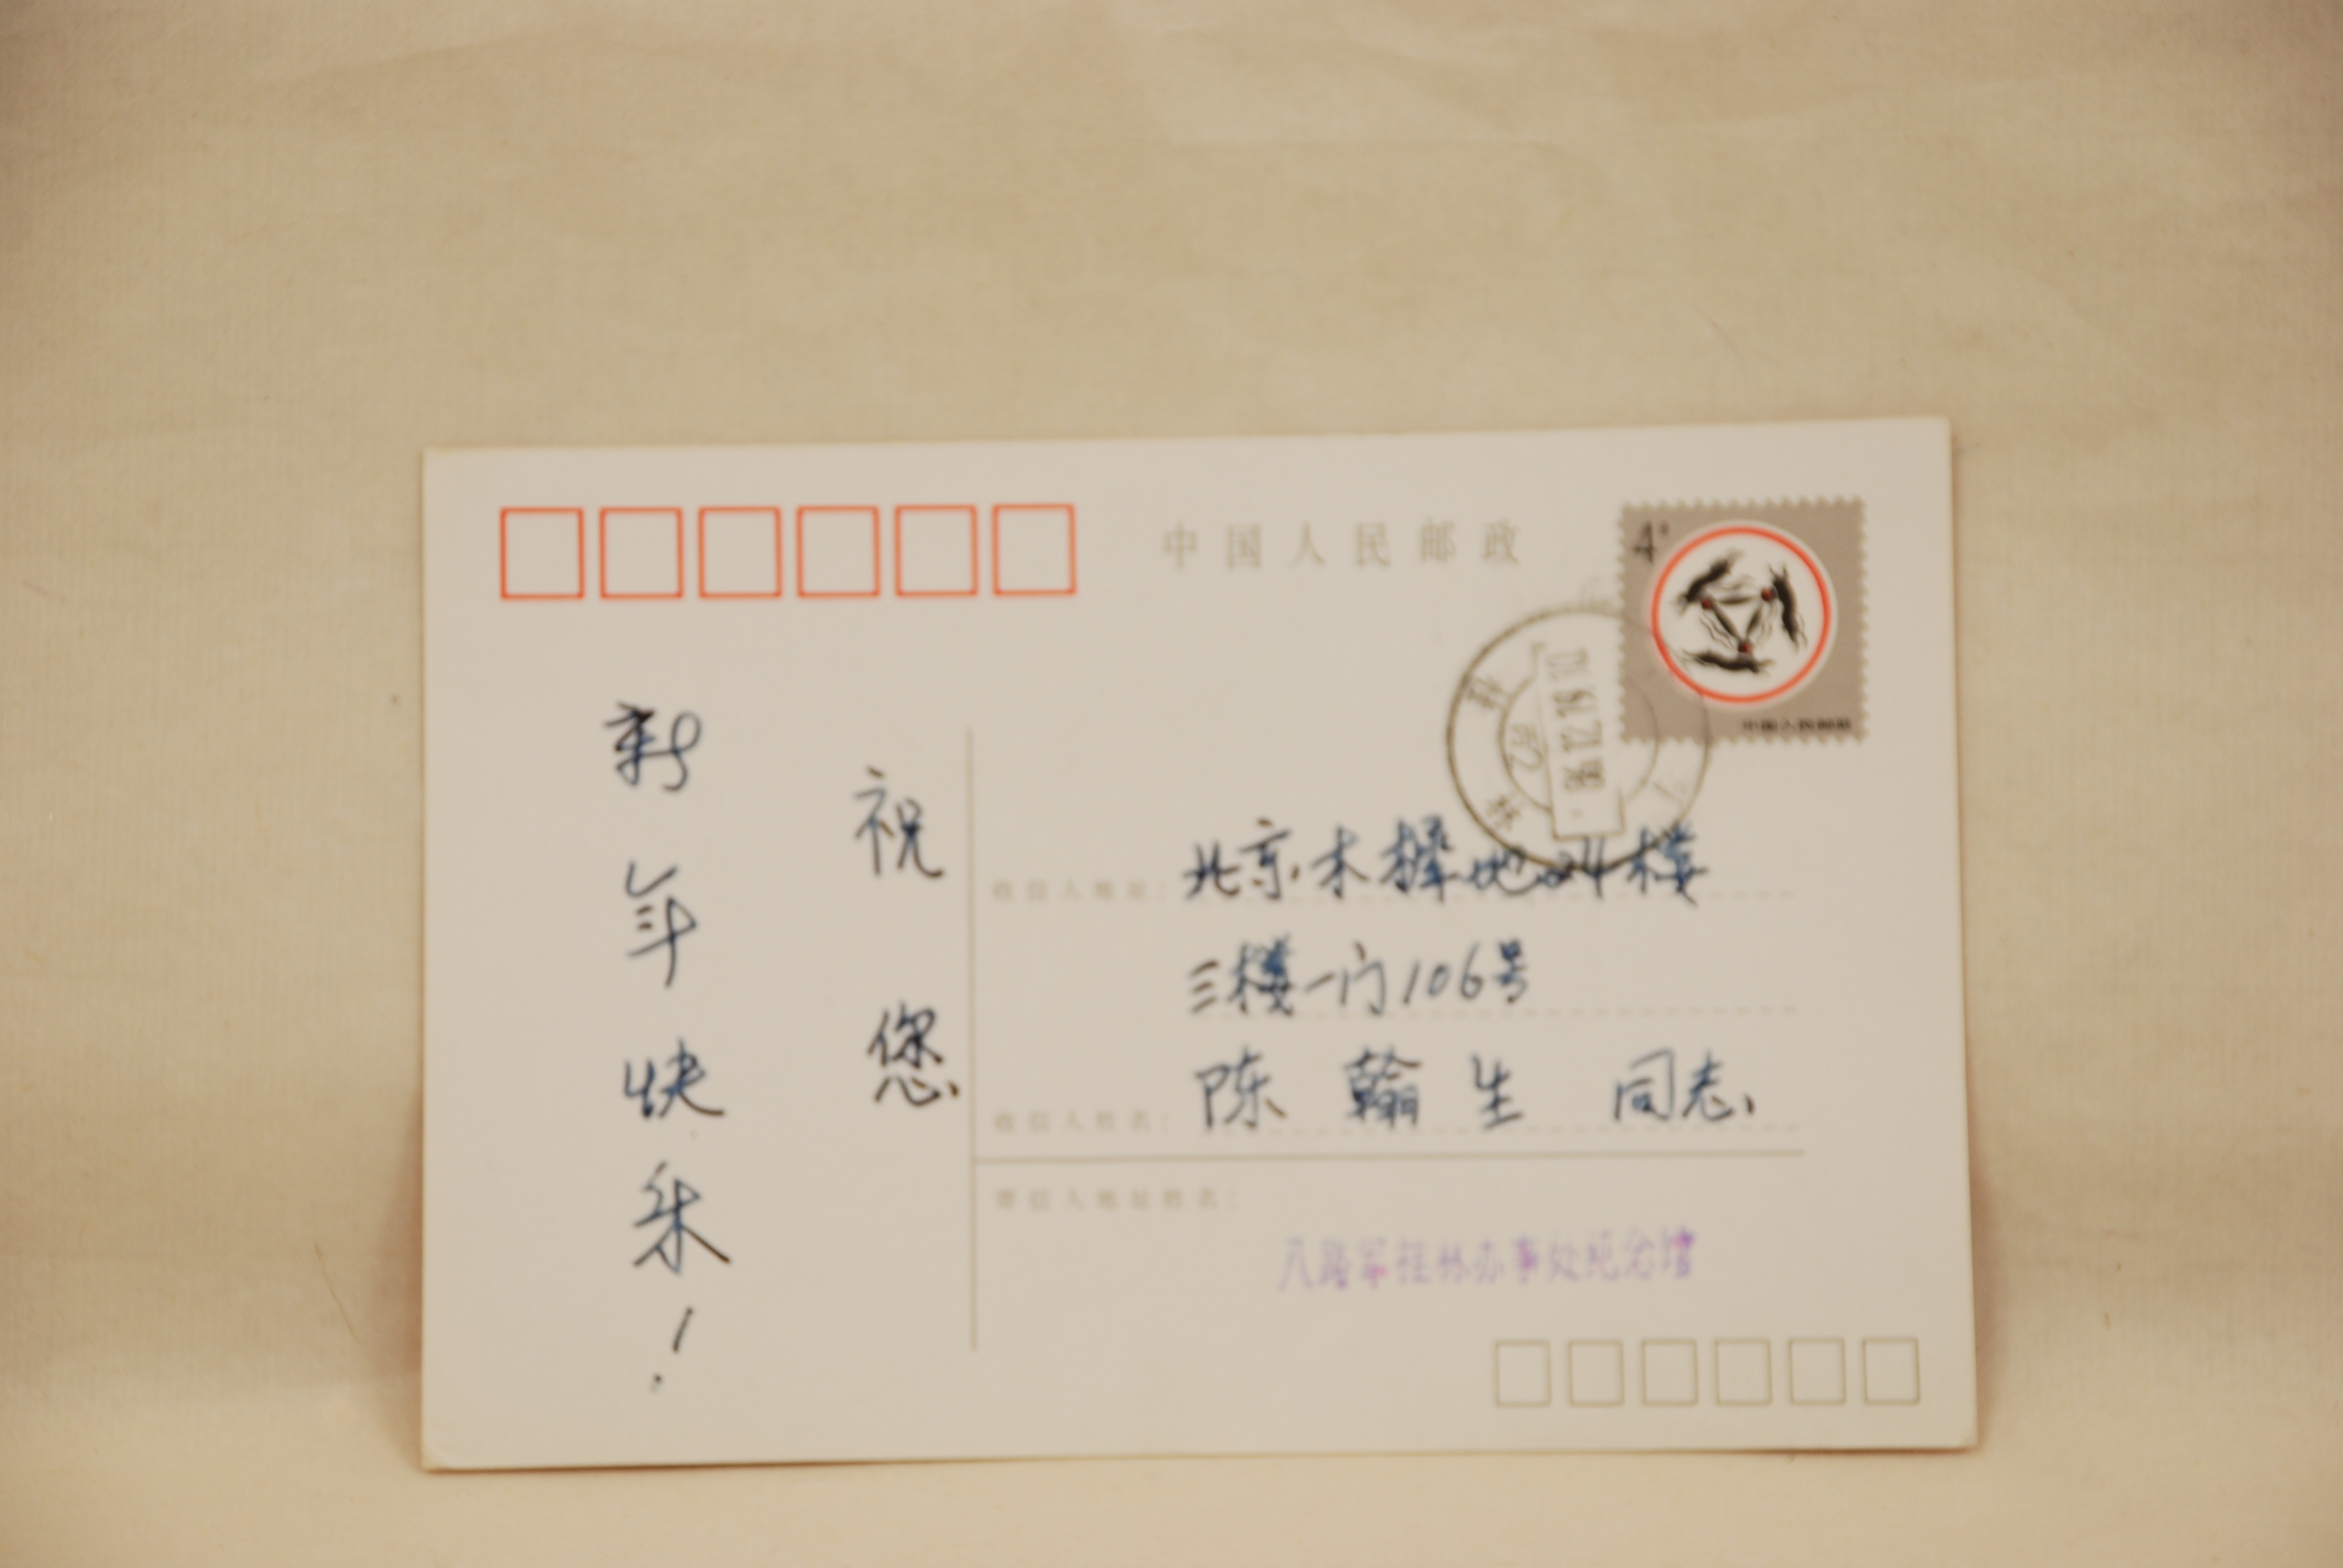 中国人民邮政
中国人民邮政
桂林
86.12.19.12
祝您
新年快乐!
收信人地址:
北京木樨地24楼
三楼一门106号
收信人姓名:
陈翰生 同志
寄信人地址姓名:
八路军桂林办事处纪念馆